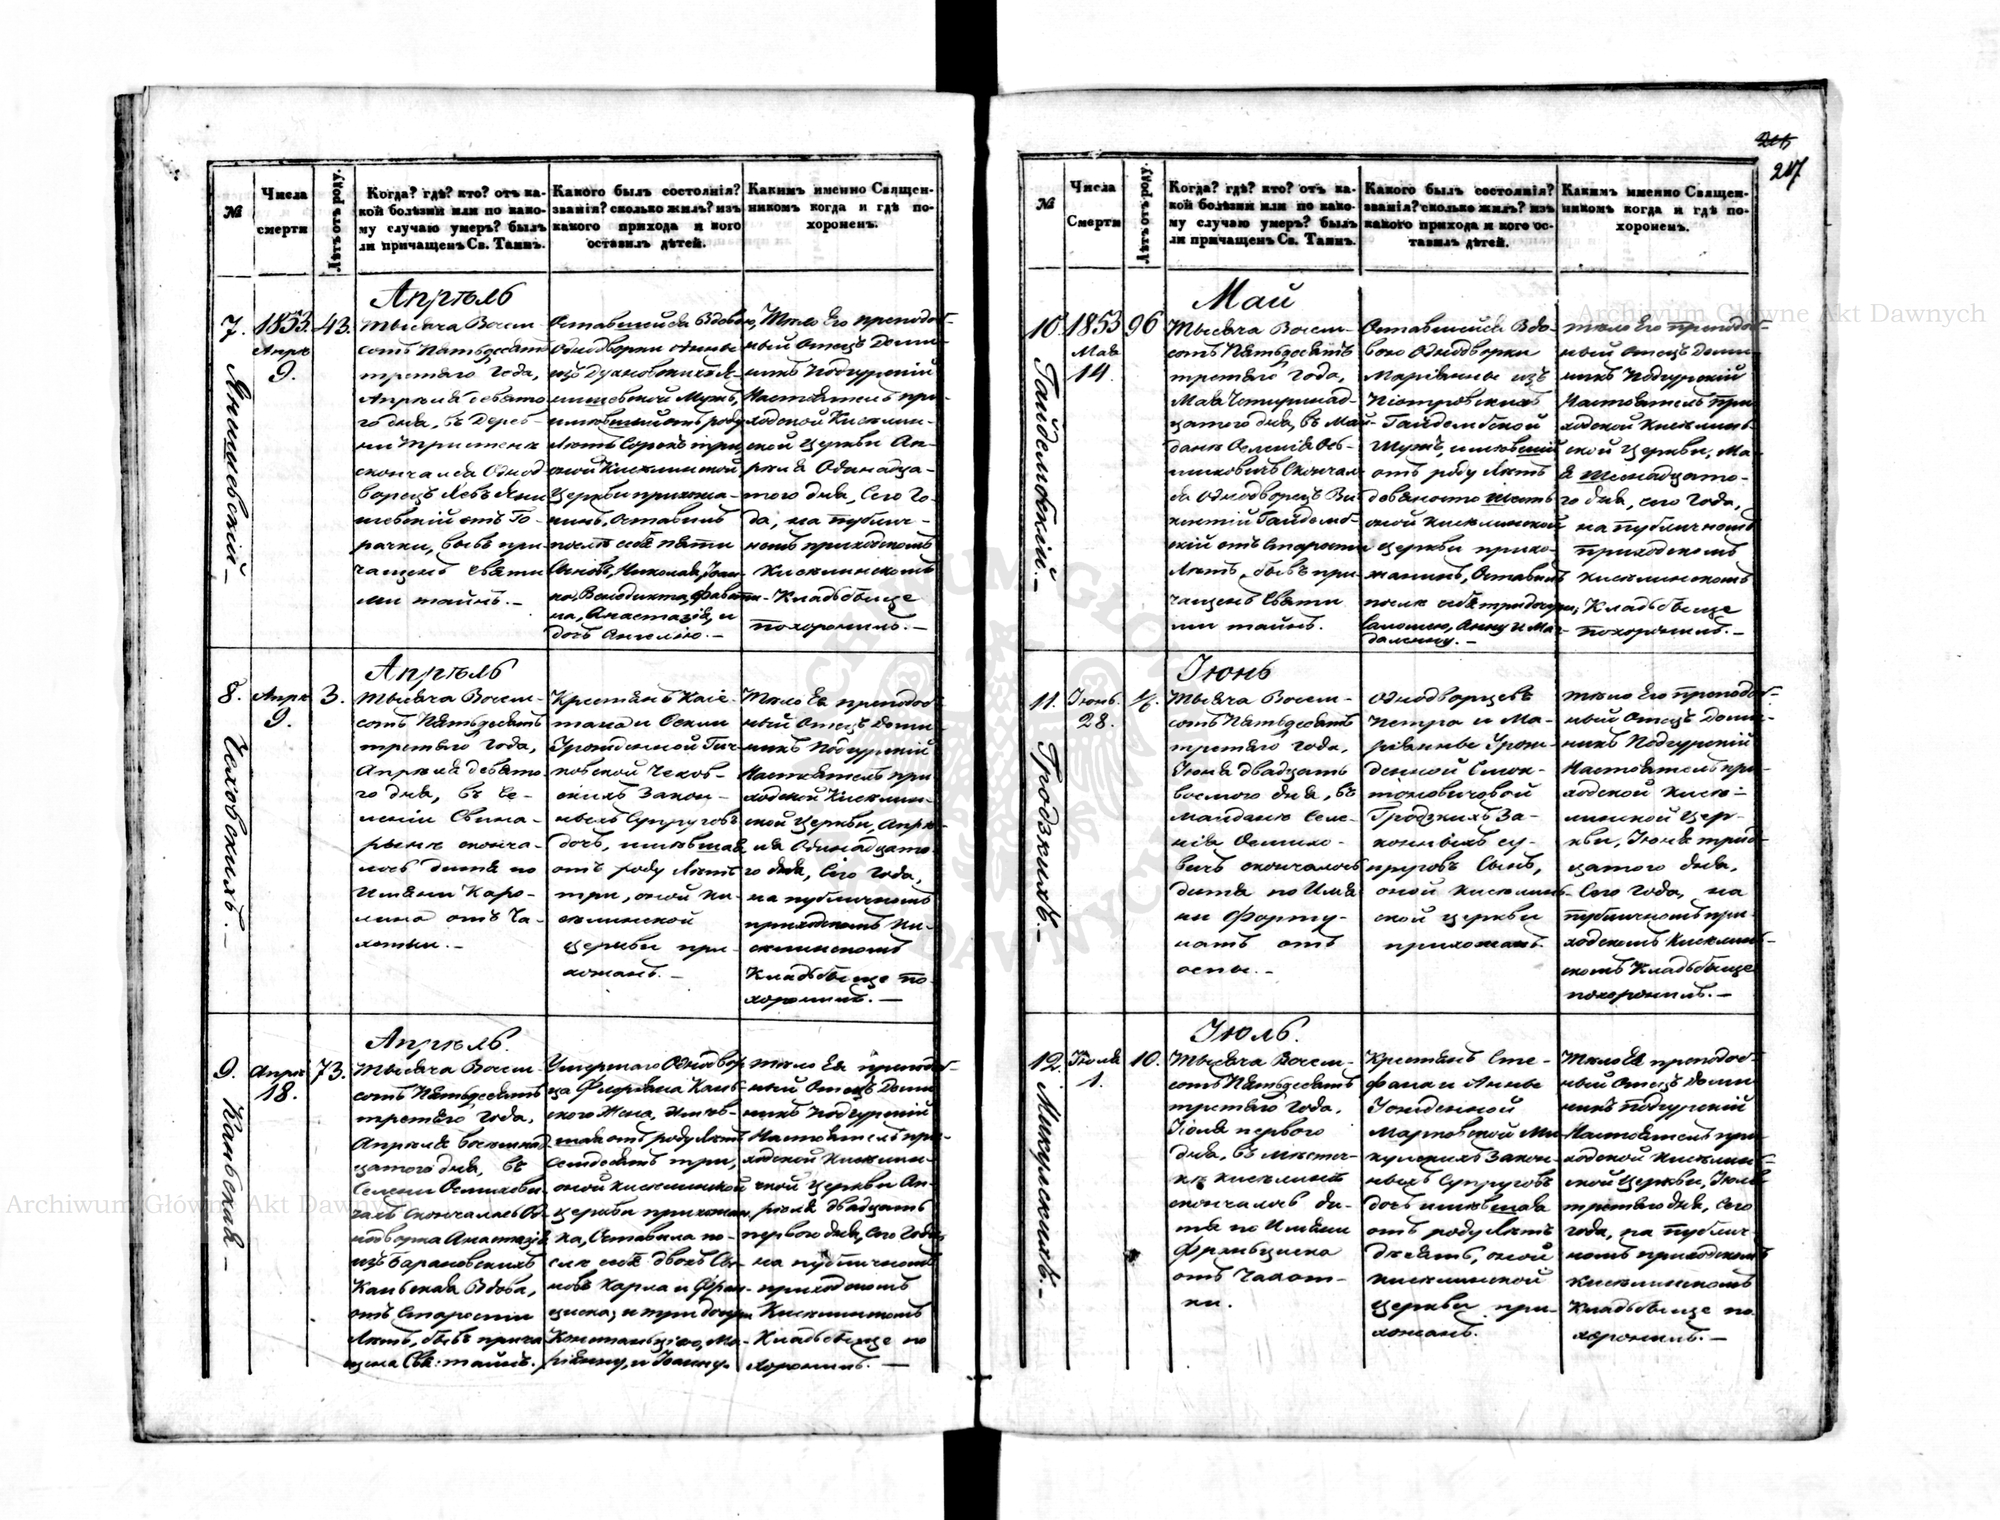 215
217
№
Числа
смерти
Лѣтъ отъ роду.
Когда? гдѣ? кто? отъ ка-
кой болѣзни или по како-
му случаю умеръ? былъ
ли причащенъ Св. Таинъ.
Какого былъ состоянія?
званія? сколько жилъ? изъ
какого прихода и кого
оставилъ дѣтей.
Какимъ именно Священ-
никомъ когда и гдѣ по-
хороненъ.
7.
Янишевскій. —
1853.
Апрѣ
9.
43.
Апрѣль
Тысяча Восем-
сотъ Пятьдесятъ
третьяго года,
Апрѣля девято-
го дня, въ Дерев-
ни
скончался Однод
ворецъ Левъ Яни
шевскій отъ Го-
рачки, бывъ при-
чащенъ Святы
ми тайнъ. —
Оставшейся Вдовы,
Однодворки
мужъ,
имѣвшій отъ роду
Лѣтъ Сорокъ три,
оной Киселинской
Церкви прихожа-
нинъ, Оставилъ
послѣ себя пяти
Сыновъ, Николая, Іоан-
на, Анастазія, и
дочь Анелію. —
Тѣло Его преподоб-
ный Отецъ Доми-
никъ Подгурскій
Настоятель при-
ходской Киселин-
ской Церкви Ап-
рѣля Одинадца-
того дня, Сего Го-
да, на публич-
номъ приходскомъ
Киселинскомъ
Кладбѣище
похоронилъ. —
8.
Чеховскихъ. —
Апрѣ
9.
3.
Апрѣль
Тысяча Восем-
сотъ Пятьдесятъ
третьяго года,
Апрѣля девято-
го дня, въ Се-
леніи Свина-
рынѣ сконча-
лось дитя по
Имяни Каро-
лина отъ Ча-
хотки. —
Крестянъ Каіе-
тана и Фекли
Урожденной Гич-
ковской Чехов-
скихъ Закон-
ныхъ Супруговъ
дочь, имѣвшая
отъ роду Лѣтъ
три, оной Ки-
селинской
Церкви при-
хожанъ. —
Тѣло Ея преподоб-
ный Отецъ Доми-
никъ Подгурскій
Настоятель при-
ходской Киселин-
ской Церкви, Апрѣ-
ля Одинадцато-
го дня, Сего Года,
на публичномъ
приходскомъ Ки-
селинскомъ
Кладбѣище по-
хоронилъ. —
9.
Каньская —
Апрѣ
18.
73.
Апрѣль.
Тысяча Восем-
сотъ Пятьдесятъ
третьяго года,
Апрѣля восемнад
цатого дня, въ
Селени Осмигови
чахъ Скончалась Од
нодворка Анастазія
изъ Барановскихъ
Каньская Вдова,
отъ Старости
Лѣтъ, бывъ прича
щена Свя: тайнъ.
Умершаго Однодвор
ца Флоріяна Кань-
ского Жена, имѣв-
шая отъ роду Лѣтъ
Семдесятъ три,
оной Киселинской
Церкви прихожан
ка, Оставила по-
слѣ себя двохъ Сы-
новъ Карла и Фран-
циска, и три дочери
Констанцію, Ма-
ріянну, и Іоанну.
Тѣло Ея преподоб-
ный Отецъ Доми
никъ Подгурскій
Настоятель при-
ходской Киселин-
ской Церкви Ап-
рѣля двадцать
первого дня, Сего Года,
на публичномъ
приходскомъ
Киселинскомъ
Кладбѣище по
хоронилъ. —
№
Числа
Смерти
Лѣтъ отъ роду.
Когда? гдѣ? кто? отъ ка-
кой болѣзни или по како-
му случаю умеръ? былъ
ли причащенъ Св. Таинъ.
Какого былъ состоянія?
званія? сколько жилъ? изъ
какого прихода и кого ос-
тавилъ дѣтей.
Какимъ именно Священ-
никомъ когда и гдѣ по-
хороненъ.
10.
Гайдембскій. —
1853
Мая
14.
96
Май
Тысяча Восем-
сотъ Пятьдесятъ
третьяго года,
Мая Четырнад-
цатого дня, въ Май-
данѣ Селенія Ос-
миковичъ Скончал
ся Однодворецъ Ви-
кентій Гайдемб-
скій отъ Старости
Лѣтъ, бывъ при-
чащенъ Святы
ми тайнъ.
Оставшейся Вдо-
вою Однодворки
Маріянны изъ
Піотровскихъ
Гайдембской
Мужъ, имѣвшій
отъ роду Лѣтъ
девяносто шесть
оной Киселинской
Церкви прихо-
жанинъ, Оставилъ
послѣ себя три дочери,
Саломею, Анну и Маг-
даленну. —
Тѣло Его преподоб-
ный Отецъ Доми-
никъ Подгурскій
Настоятель при-
ходской Киселин-
ской Церкви, Ма-
я Шеснадцато-
го дня, сего года,
на публичномъ
приходскомъ
Киселинскомъ
Кладбѣище
похоронилъ. —
11.
Гродзкихъ. —
Іюнь
28.
Іюнь
Тысяча Восем-
сотъ Пятьдесятъ
третьяго года,
Іюня двадцать
восмого дня, въ
Майданѣ Селе-
нія Осмиго-
вичъ скончалось
дитя по Имя
ни Форту-
натъ отъ
оспы. —
Однодворцевъ
Петра и Ма-
ріянны Урож-
денной Смок-
тоновичовой
Гродзкихъ За-
конныхъ су-
пруговъ Сынъ,
оной Киселин-
ской церкви
прихожанъ.
Тѣло Его преподоб-
ный Отецъ Доми-
никъ Подгурскій
Настоятель при-
ходской Кисе-
линской Цер-
кви, Іюня трид-
цатого дня,
Сего Года, на
публичномъ при-
ходскомъ Киселин-
скомъ Кладбѣище
похоронилъ. —
12.
Микульскихъ. —
Іюля
1.
10.
Іюль.
Тысяча Восем-
сотъ Пятьдесятъ
третьяго года,
Іюля первого
дня, въ Мѣстеч-
кѣ Киселинѣ
скончалось ди-
тя по Имяни
Францишка
отъ Чахот-
ки.
Крестянъ Сте-
фана и Анны
Урожденной
Марковской Ми
кульскихъ Закон-
ныхъ Супруговъ
дочь имѣвшая
отъ роду Лѣтъ
десять, оной
Киселинской
Церкви при-
хожанъ.
Тѣло Ея преподоб-
ный Отецъ Доми
никъ Подгурскій
Настоятель при-
ходской Киселин-
ской Церкви, Іюля
третьяго дня, Сего
года, на публич-
номъ приходскомъ
Киселинскомъ
Кладбѣище по-
хоронилъ. —
Archiwum Główne Akt Dawnych
Archiwum Główne Akt Dawnych
ARCHIWUM GŁÓWNE AKT DAWNYCH